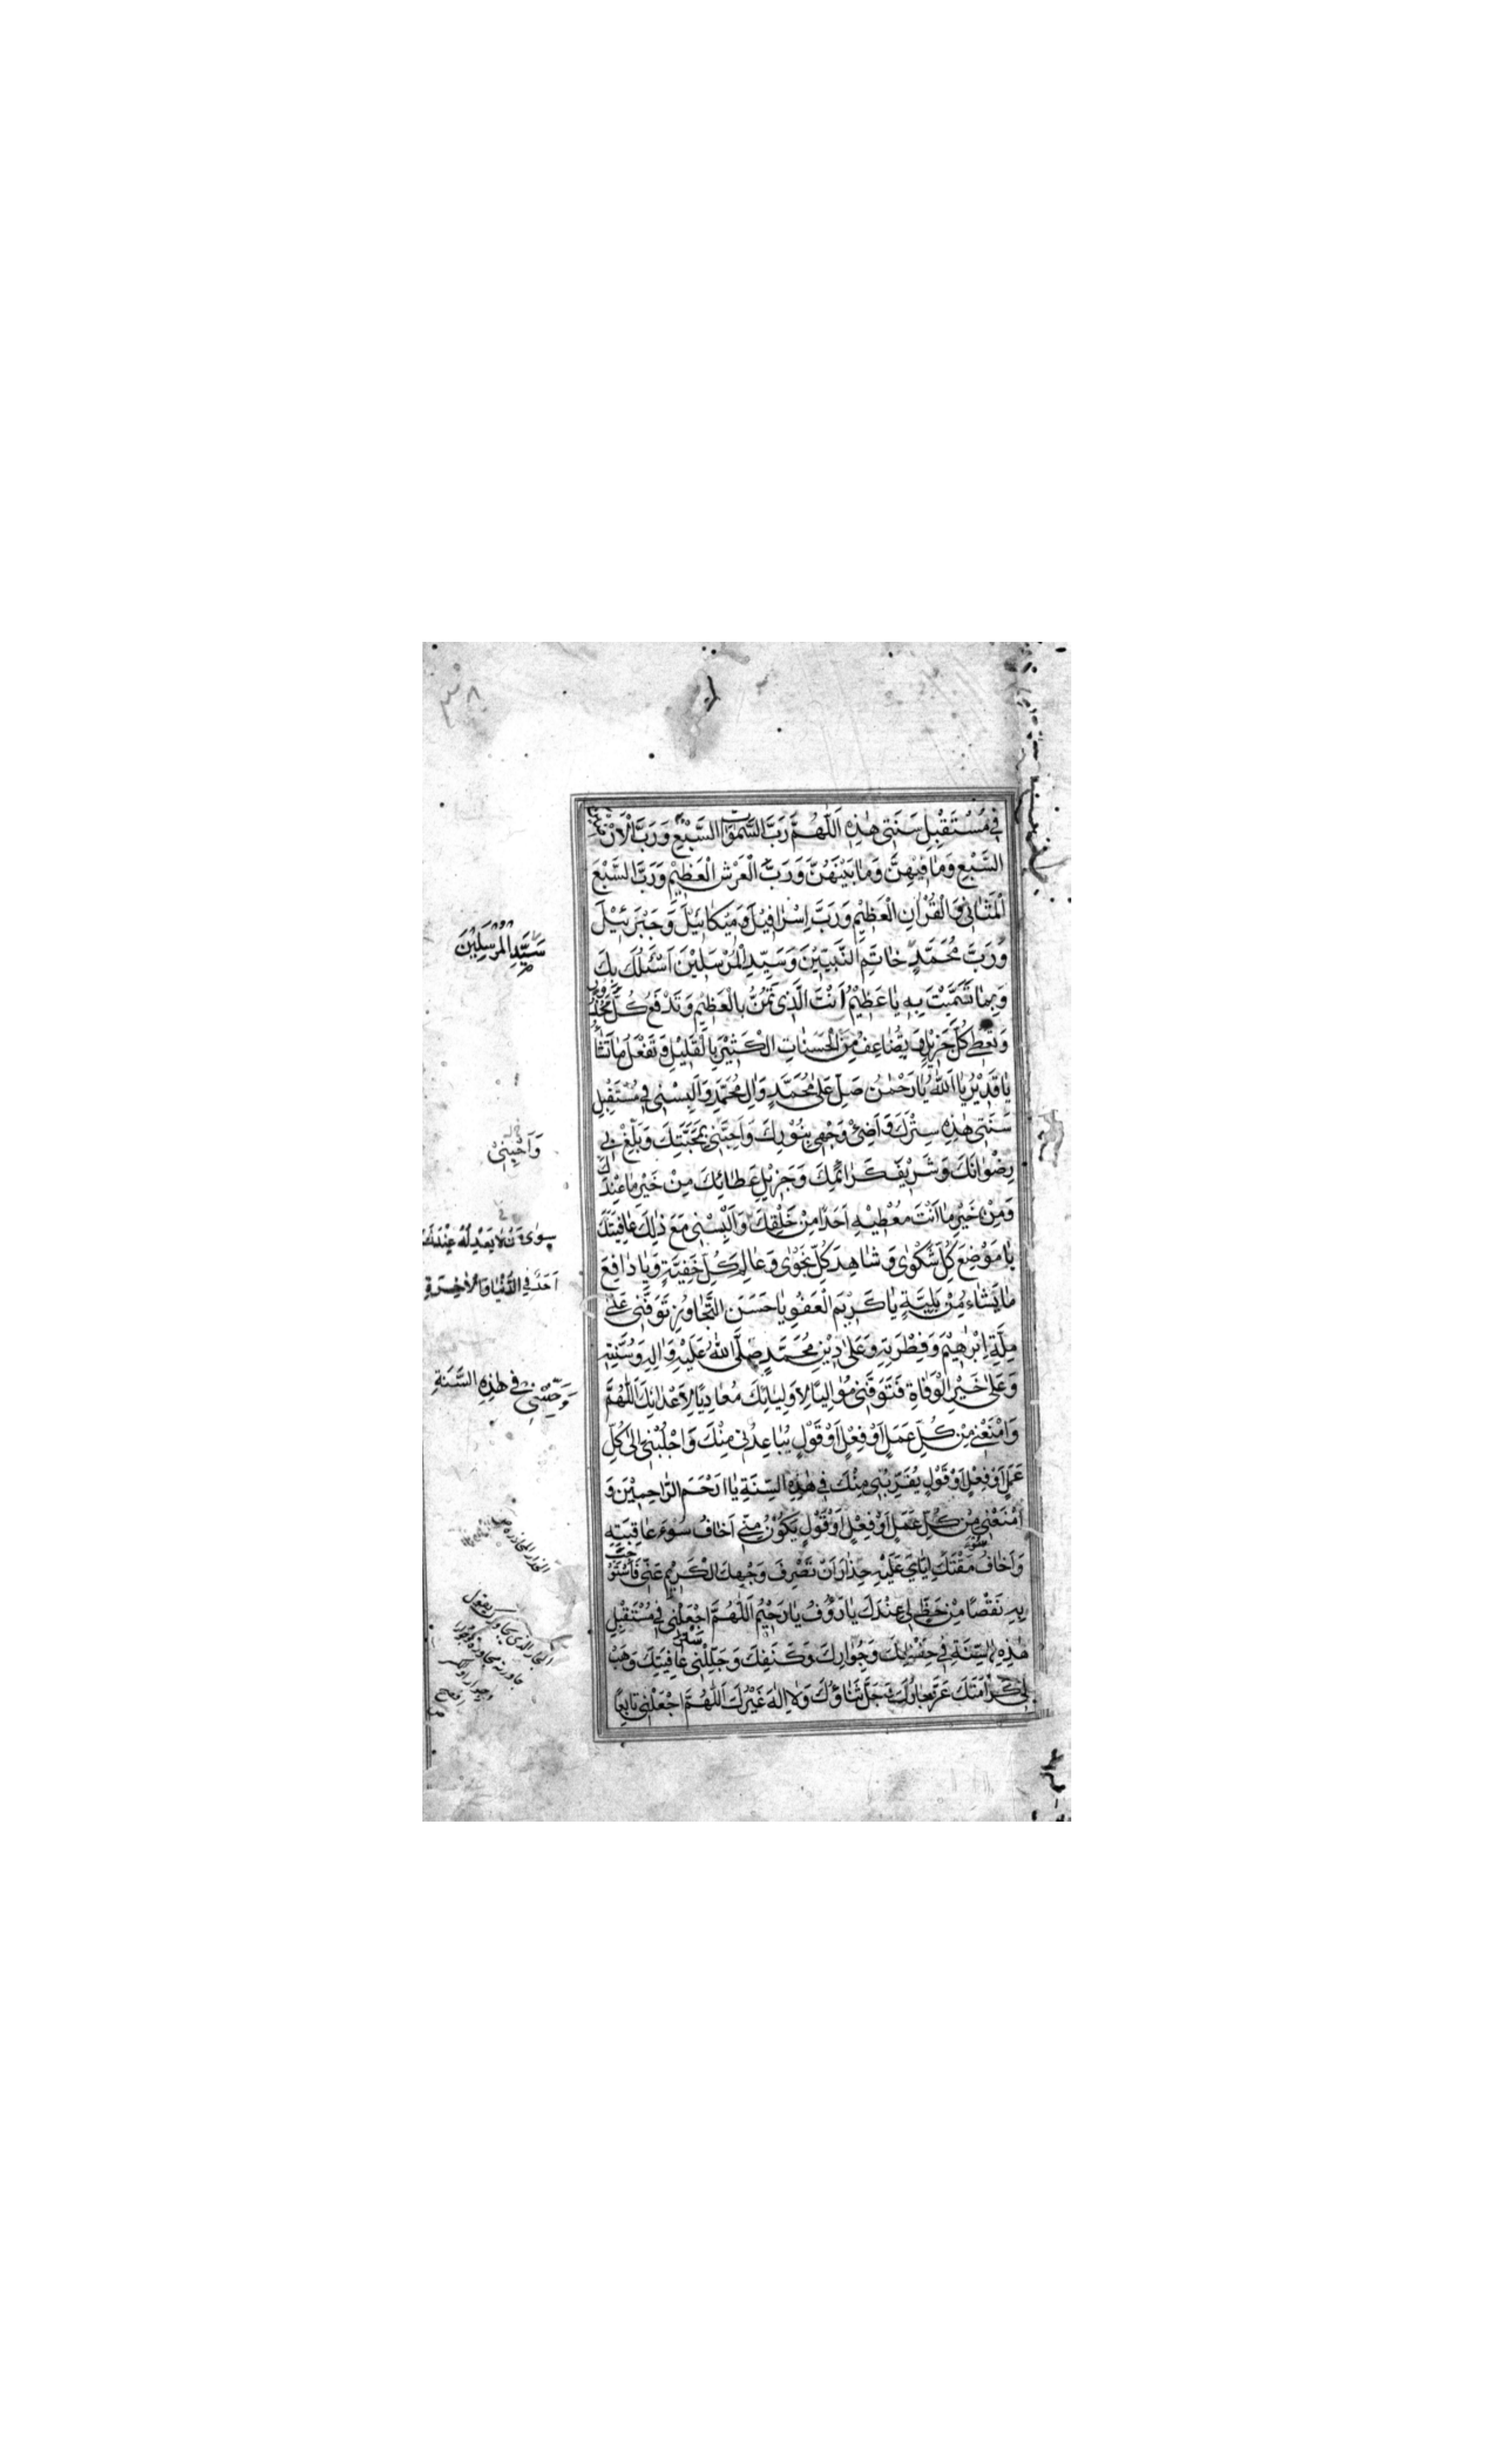 ٣٨
فِي مُسْتَقْبِلِ سَنَتِي هٰذِهِ اَللّٰهُمَّ رَبَّ السَّمٰوَاتِ السَّبْعِ وَرَبَّ الْاَرَضِينَ
السَّبْعِ وَمٰا فِيهِنَّ وَمٰا بَيْنَهُنَّ وَرَبَّ الْعَرْشِ الْعَظِيْمِ وَرَبَّ السَّبْعِ
الْمَثٰانِي وَالْقُرْاٰنِ الْعَظِيْمِ وَرَبَّ اِسْرٰافِيْلَ وَمِيْكٰائِيْلَ وَجَبْرَئِيْلَ
وَرَبَّ مُحَمَّدٍ خٰاتِمِ النَّبِيِّيْنَ وَسَيِّدِ الْمُرْسَلِيْنَ اَسْئَلُكَ بِكَ
وَبِمٰا تَسَمَّيْتَ بِهِ يٰا عَظِيْمُ اَنْتَ الَّذِي تَمُنُّ بِالْعَظِيْمِ وَتَدْفَعُ كُلَّ مَحْذُوْرٍ
وَتُعْطِي كُلَّ جَزِيْلٍ وَتُضٰاعِفُ مِنَ الْحَسَنٰاتِ الْكَثِيْرَ بِالْقَلِيْلِ وَتَفْعَلُ مٰا تَشٰاءُ
يٰا قَدِيْرُ يٰا اَللّٰهُ يٰا رَحْمٰنُ صَلِّ عَلٰى مُحَمَّدٍ وَاٰلِ مُحَمَّدٍ وَاَلْبِسْنِي فِي مُسْتَقْبِلِ
سَنَتِي هٰذِهِ سِتْرَكَ وَاَضِئْ وَجْهِي بِنُوْرِكَ وَاَحِبَّنِي بِمَحَبَّتِكَ وَبَلِّغْ بِي
رِضْوٰانَكَ وَشَرِيْفَ كَرٰائِمِكَ وَجَزِيْلَ عَطٰائِكَ مِنْ خَيْرِ مٰا عِنْدَكَ
وَمِنْ خَيْرِ مٰا اَنْتَ مُعْطِيْهِ اَحَدًا مِنْ خَلْقِكَ وَاَلْبِسْنِي مَعَ ذٰلِكَ عٰافِيَتَكَ
يٰا مَوْضِعَ كُلِّ شَكْوٰى وَشٰاهِدَ كُلِّ نَجْوٰى وَعٰالِمَ كُلِّ خَفِيَّةٍ وَيٰا دٰافِعَ
مٰا يَشٰاءُ مِنْ بَلِيَّةٍ يٰا كَرِيْمَ الْعَفْوِ يٰا حَسَنَ التَّجٰاوُزِ تَوَفَّنِي عَلٰى
مِلَّةِ اِبْرٰهِيْمَ وَفِطْرَتِهِ وَعَلٰى دِيْنِ مُحَمَّدٍ صَلَّى اللّٰهُ عَلَيْهِ وَاٰلِهِ وَسُنَّتِهِ
وَعَلٰى خَيْرِ الْوَفٰاةِ فَتَوَفَّنِي مُوٰالِيًا لِاَوْلِيٰائِكَ مُعٰادِيًا لِاَعْدٰائِكَ اَللّٰهُمَّ
وَامْنَعْنِي مِنْ كُلِّ عَمَلٍ اَوْ فِعْلٍ اَوْ قَوْلٍ يُبٰاعِدُنِي مِنْكَ وَاجْلُبْنِي اِلٰى كُلِّ
عَمَلٍ اَوْ فِعْلٍ اَوْ قَوْلٍ يُقَرِّبُنِي مِنْكَ فِي هٰذِهِ السَّنَةِ يٰا اَرْحَمَ الرّٰاحِمِيْنَ وَ
امْنَعْنِي مِنْ كُلِّ عَمَلٍ اَوْ فِعْلٍ اَوْ قَوْلٍ يَكُوْنُ مِنِّي اَخٰافُ سُوْءَ عٰاقِبَتِهِ
وَاَخٰافُ مَقْتَكَ اِيّٰايَ عَلَيْهِ حِذٰارَ اَنْ تَصْرِفَ وَجْهَكَ الْكَرِيْمَ عَنِّي فَاَسْتَوْجِبَ
بِهِ نَقْصًا مِنْ حَظٍّ لِي عِنْدَكَ يٰا رَؤُوْفُ يٰا رَحِيْمُ اَللّٰهُمَّ اجْعَلْنِي فِي مُسْتَقْبِلِ
هٰذِهِ السَّنَةِ فِي حِفْظِكَ وَجِوٰارِكَ وَكَنَفِكَ وَجَلِّلْنِي عٰافِيَتَكَ وَهَبْ
لِي كَرٰامَتَكَ عَزَّ جٰارُكَ وَجَلَّ ثَنٰاؤُكَ وَلٰا اِلٰهَ غَيْرُكَ اَللّٰهُمَّ اجْعَلْنِي تٰابِعًا
سَيِّدِ الْمُرْسَلِيْنَ
وَاَحْيِنِي
اَحَدٌ فِي الدُّنْيٰا وَالْاٰخِرَةِ
فِي هٰذِهِ السَّنَةِ